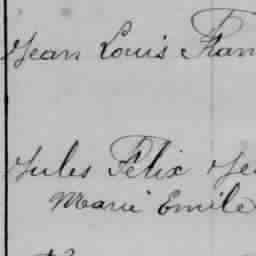 Jean Louis Fran
Jules Félix Je
Marie Emile